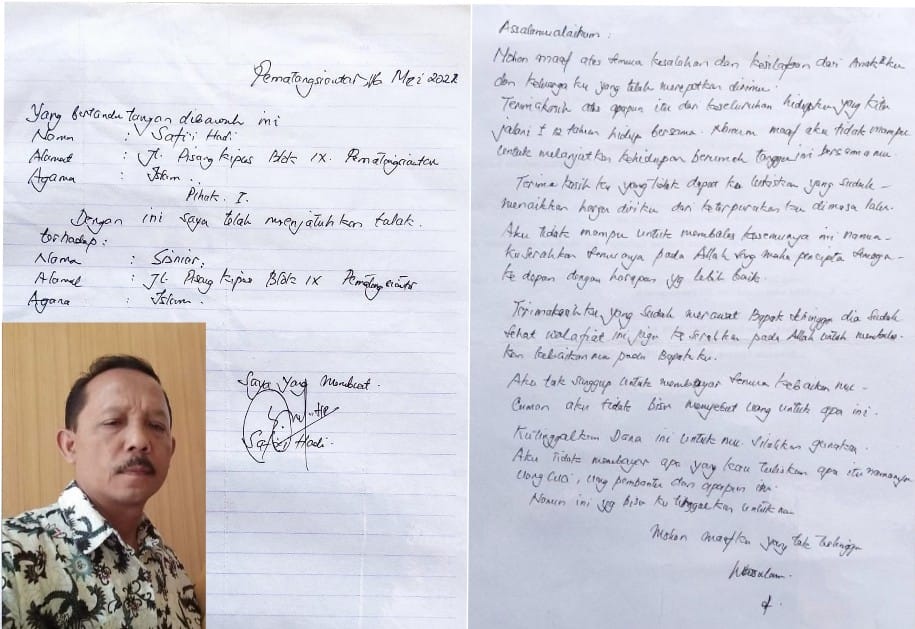 Pematangsiantar, 16 Mei 2022
Yang bertanda tangan dibawah ini
Nama : Safiri Hadi
Alamat : Jl. Pisang Kipas Blok IX. Pematangsiantar
Agama : Islam.
Pihak. I.
Dengan ini saya telah menjatuhkan talak.
terhadap:
Nama : Sisniar.
Alamat : Jl. Pisang Kipas Blok IX Pematangsiantar
Agama : Islam.
Saya Yang Membuat.
Safiri Hadi.
Assalamualaikum :
Mohon maaf atas semua kesalahan dan kesilapan dari Anakku
dan keluarga ku yang telah merepotkan dirimu.
Terimakasih atas apapun itu dan keseluruhan hidupku yang kita
jalani ± 12 tahun hidup bersama. Namun maaf aku tidak mampu
untuk melanjutkan kehidupan berumah tangga ini bersamamu
Terima kasih ku yang tidak dapat ku lukiskan yang sudah -
menaikkan harga diriku dari keterpurukan ku dimasa lalu.
Aku tidak mampu untuk membalas kesemuanya ini namun -
kuserahkan semuanya pada Allah yang maha pencipta semoga -
ke depan dengan harapan yg lebih baik.
Terimakasihku yang sudah merawat Bapak sehingga dia sudah
sehat walafiat ini juga ku serahkan pada Allah untuk membalas
kan kebaikanmu pada Bapakku.
Aku tak sanggup untuk membayar semua kebaikan mu -
Cuman aku tidak bisa menyebut uang untuk apa ini.
Kutinggalkan Dana ini untuk mu. silahkan gunakan.
Aku tidak membayar apa yang kau tuliskan apa itu namanya
Uang Cuci, uang pembantu dan apapun itu.
Namun ini yg bisa ku tinggalkan untuk mu
Mohon maafku yang tak terhingga
Wassalam.